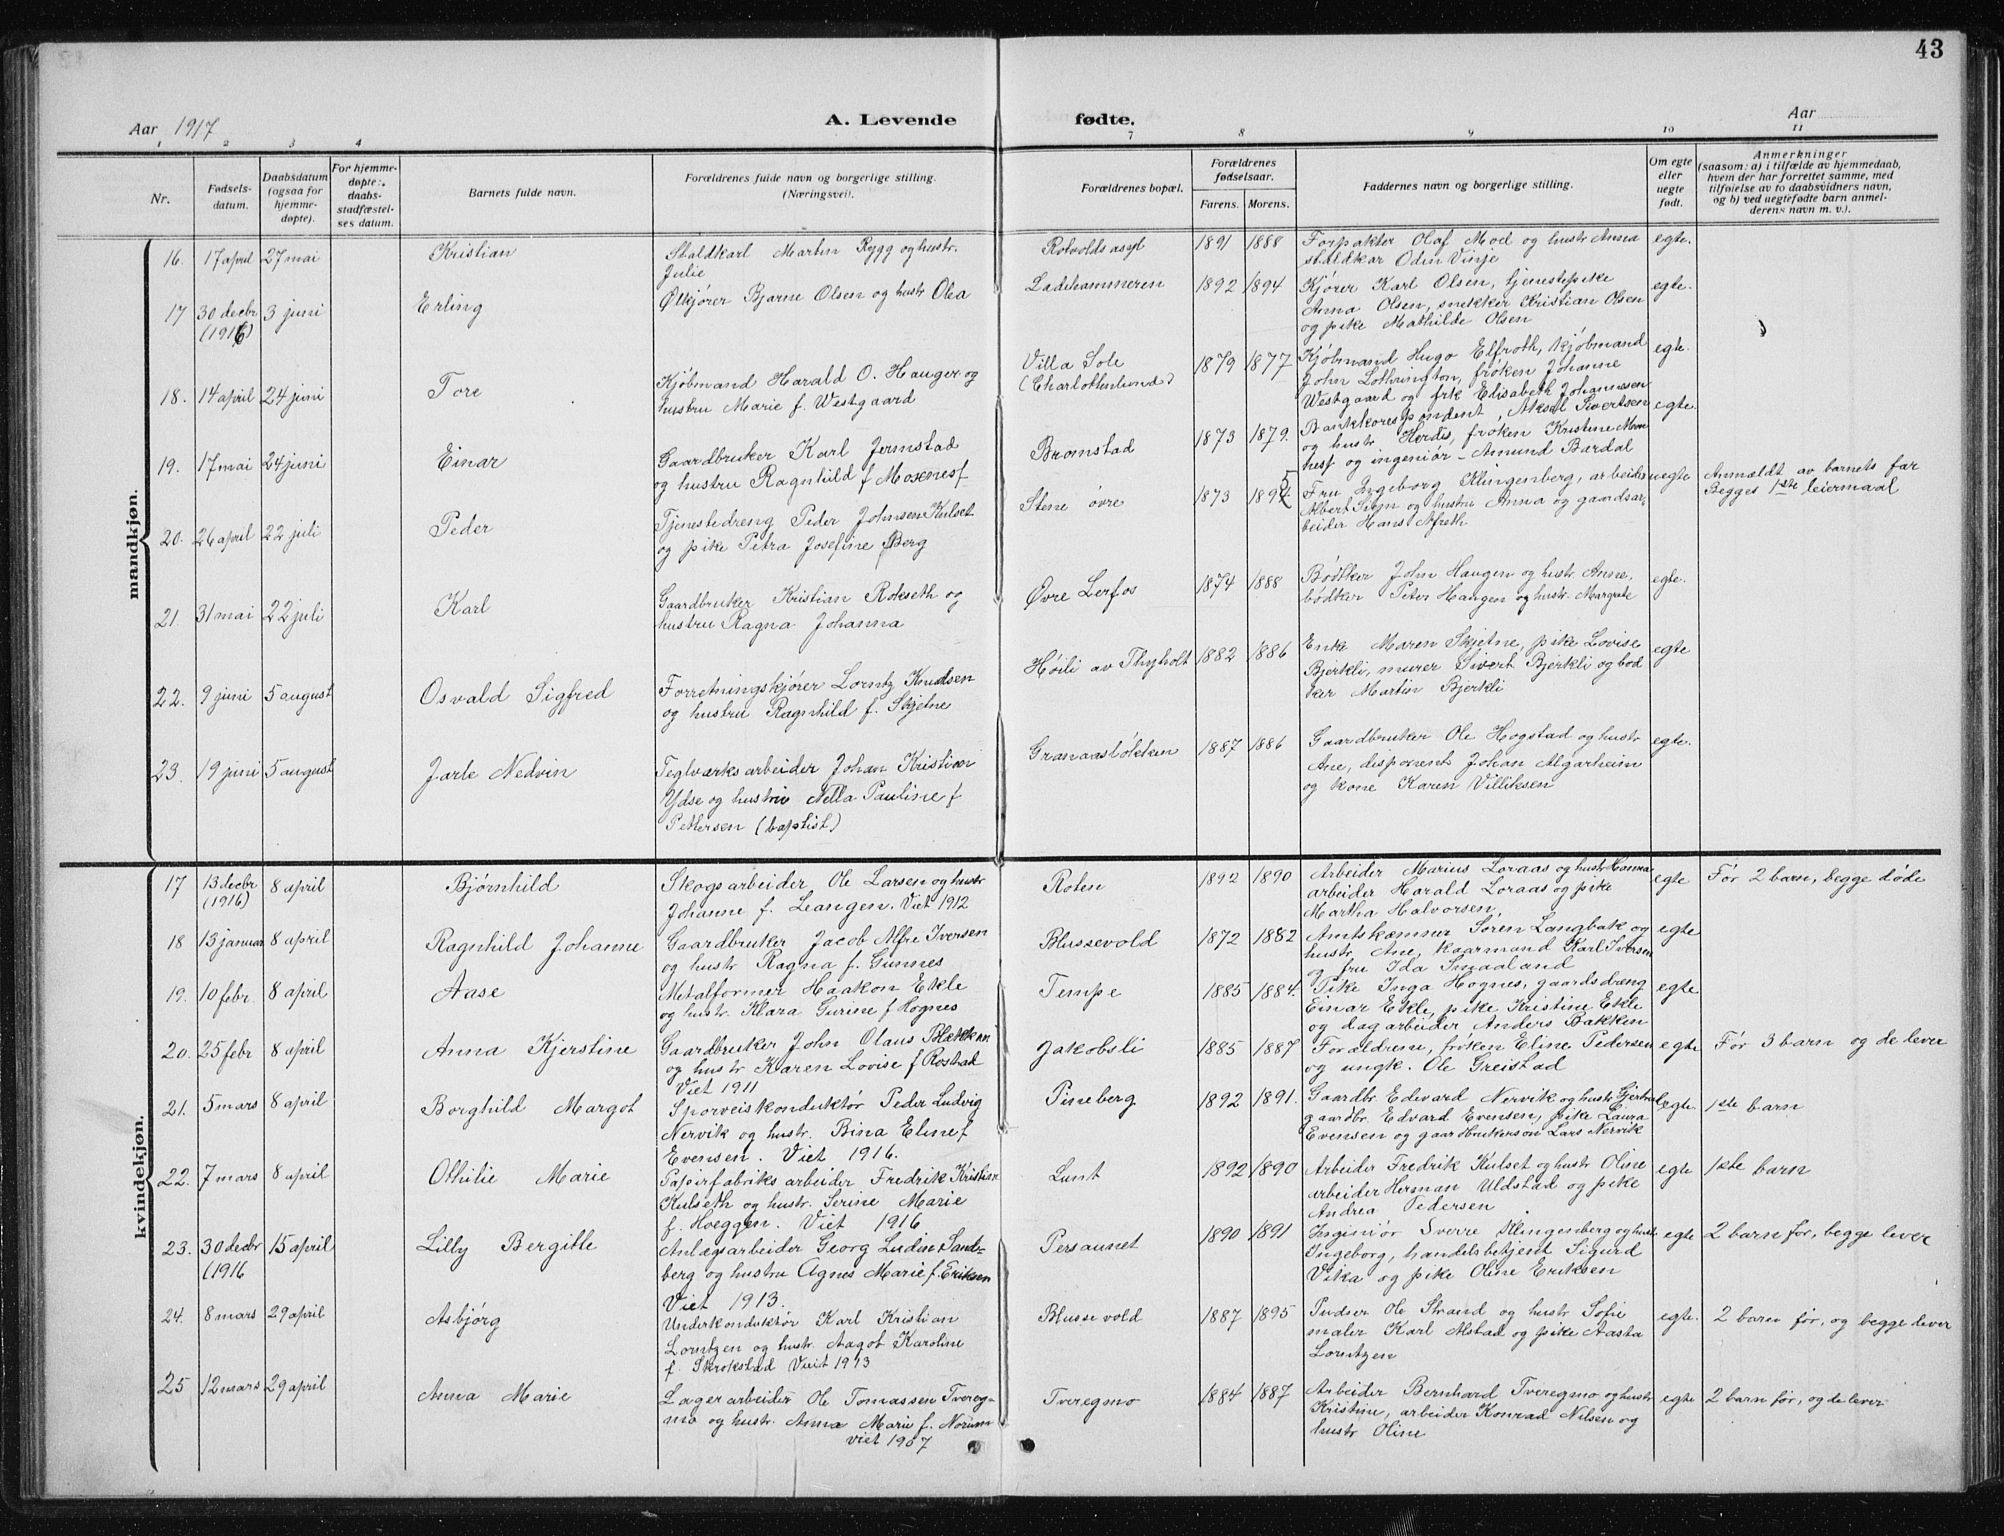 43
Aar 1917
A. Levende fødte.
Aar
1 2 3 4 7 8 9 10 11
Nr.
Fødsels-
datum.
Daabsdatum
(ogsaa for
hjemme-
døpte).
For hjemme-
døpte:
daabs-
stadfæstel-
ses datum.
Barnets fulde navn.
Forældrenes fulde navn og borgerlige stilling.
(Næringsvei).
Forældrenes bopæl.
Forældrenes
fødselsaar.
Farens. Morens.
Faddernes navn og borgerlige stilling.
Om egte
eller
uegte
født.
Anmerkninger
(saasom: a) i tilfælde av hjemmedaab,
hvem der har forrettet samme, med
tilføielse av to daabsvidners navn,
og b) ved uegtefødte barn anmel-
derens navn m. v.).
mandkjøn.
16. 17 april 27 mai Kristian
Staldkarl Martin Rygg og hustr.
Julie
Rotvolds asyl 1891 1888
Forpakter Olaf Moe og hustr Anna
staldkar Odin Vinje
egte.
17 30 decbr (1916) 3 juni Erling
Ølkjører Bjarne Olsen og hustr Olea
Ladehammeren 1892 1894
Kjører Karl Olsen, tjenestepike
Anna Olsen, snekker Kristian Olsen
og pike Mathilde Olsen
egte.
18. 14 april 24 juni Tore
Kjøbmand Harald O. Hauger og
hustru Marie f. Westgaard
Villa Sole
(Charlottenlund)
1879 1877
Kjøbmand Hugo Elfroth, kjøbmand
John Lothrington, frøken Johanne
Westgaard og frk Elisabeth Johannesen
egte.
19. 17 mai 24 juni Einar
Gaardbruker Karl Jermstad
og hustru Ragnhild f Moxenes
Bromstad 1873 1879.
Bankkorespondent, Aksel Sivertsen
og hustr Herdis, frøken Kristine
og ingeniør Amund Bardal
egte.
20. 26 april 22 juli Peder
Tjenestedreng Peder Johnsen Kulset
og pike Petra Josefine Berg
Stene øvre 1873 1895
Fru Ingeborg Klingenberg, arbeider
Albert Sem og hustru Anna og gaardsar-
beider Hans
uegte
Anmældt av barnets far
Begges 1ste leiermaal
21. 31 mai 22 juli Karl
Gaardbruker Kristian Rokseth og
hustru Ragna Johanna
Øvre Lerfos 1874 1888
Bødker John Haugen og hustr. Anne,
bødker Peter Haugen og hustr. Margrete
egte.
22. 9 juni 5 august Osvald Sigfred
Forretningskjører Lorntz Knudsen
og hustru Ragnhild f. Skjetne
Høili av Thyholt 1882 1886
Enke Maren Skjetne, pike Lovise
Bjerkli, murer Sivert Bjerkli og bød
ker Martin Bjerkli
egte
23. 19 juni 5 august Jarle Nedvin
Teglværksarbeider Johan Kristian
Ydse og hustru Nella Pauline f
Pettersen (baptist)
Granaasløkken 1887 1886
Gaardbruker Ole Hogstad og hustr
Ane, disponent Johan Algarheim
og kone Karen Villiksen
egte.
kvindekjøn.
17 13 decbr (1916) 8 april Bjørnhild
Skogsarbeider Ole Larsen og hustr
Johanne f. Leangen. Viet 1912
Roten 1892 1890
Arbeider Marius Loraas og hustr Hanna
arbeider Harald Loraas og pike
Martha Halvorsen,
egte
Før 2 barn, begge døde
18 13 januar 8 april Ragnhild Johanne
Gaardbruker Jacob Alfre Iversen
og hustr Ragna f. Gunnes
Blussevold 1872 1882
Amtskæmner Søren Langbak og
hustr Ane, kaarmand Karl Iversen
og fru Ida Smaaland
egte
19. 10 febr. 8 april Aase
Metalformer Haakon Ekle
og hustr. Klara Gurine f Hognes
Tempe 1885 1884.
Pike Inga Hognes, gaardsdræng
Einar Ekle, pike Kristine Ekle
og dagarbeider Anders Bakken
egte
20. 25 febr 8 april Anna Kjerstine
Gaardbruker John Olaus Blekkan
og hustr Karen Lovise f Rostad
Viet 1911
Jakobsli 1885 1887
Forældrene, frøken Eline Pedersen
og ungk. Ole Greistad
egte
Før 3 barn og de lever
21. 5 mars 8 april Borghild Margot
Sporveiskonduktør Peder Ludvig
Nervik og hustr. Bina Eline f
Evensen. Viet 1916.
Pineberg 1892 1891.
Gaardbr. Edvard Nervik og hustr Gjertrud
gaardbr. Edvard Evensen, pike Laura
Evensen og gaardbrukersøn Lars Nervik
egte.
1ste barn
22. 7 mars 8 april Othilie Marie
Papirfabriksarbeider Fredrik Kristian
Kulseth og hustr. Serine Marie
f. Hoeggen. Viet 1916
Lunt 1892 1890
Arbeider Fredrik Kulset og hustr Oline
arbeider Herman Uldstad og pike
Andrea Pedersen
egte
1ste barn
23. 30 decbr (1916 15 april Lilly Bergitte
Anlægsarbeider Georg Ludin Sand-
berg og hustru Agnes Marie f. Eriksen
Viet 1913.
Persaunet 1890 1891
Ingeniør Sverre Klingenberg og hustr
Ingeborg, handelsbetjent Sigurd
Vika og pike Oline Eriksen
egte
2 barn før, begge lever
24. 8 mars 29 april Asbjørg
Underkonduktør Karl Kristian
Lorntzen og hustr. Aagot Karoline
f. Skrokstad Viet 1913
Blussevold 1887 1895
Pudser Ole Strand og hustr Sofie
maler Karl Alstad og pike Aasta
Lorntzen
egte.
2 barn før, og begge lever
25 12 mars 29 april Anna Marie
Lagerarbeider Ole Tomassen Tvereg-
mo og hustr. Anna Marie f. Norum
viet 1907
Tveregmo 1884 1887
Arbeider Bernhard Tveregmo og hustr
Kristine, arbeider Konrad Nilsen og
hustr Oline
egte
2 barn før, og de lever